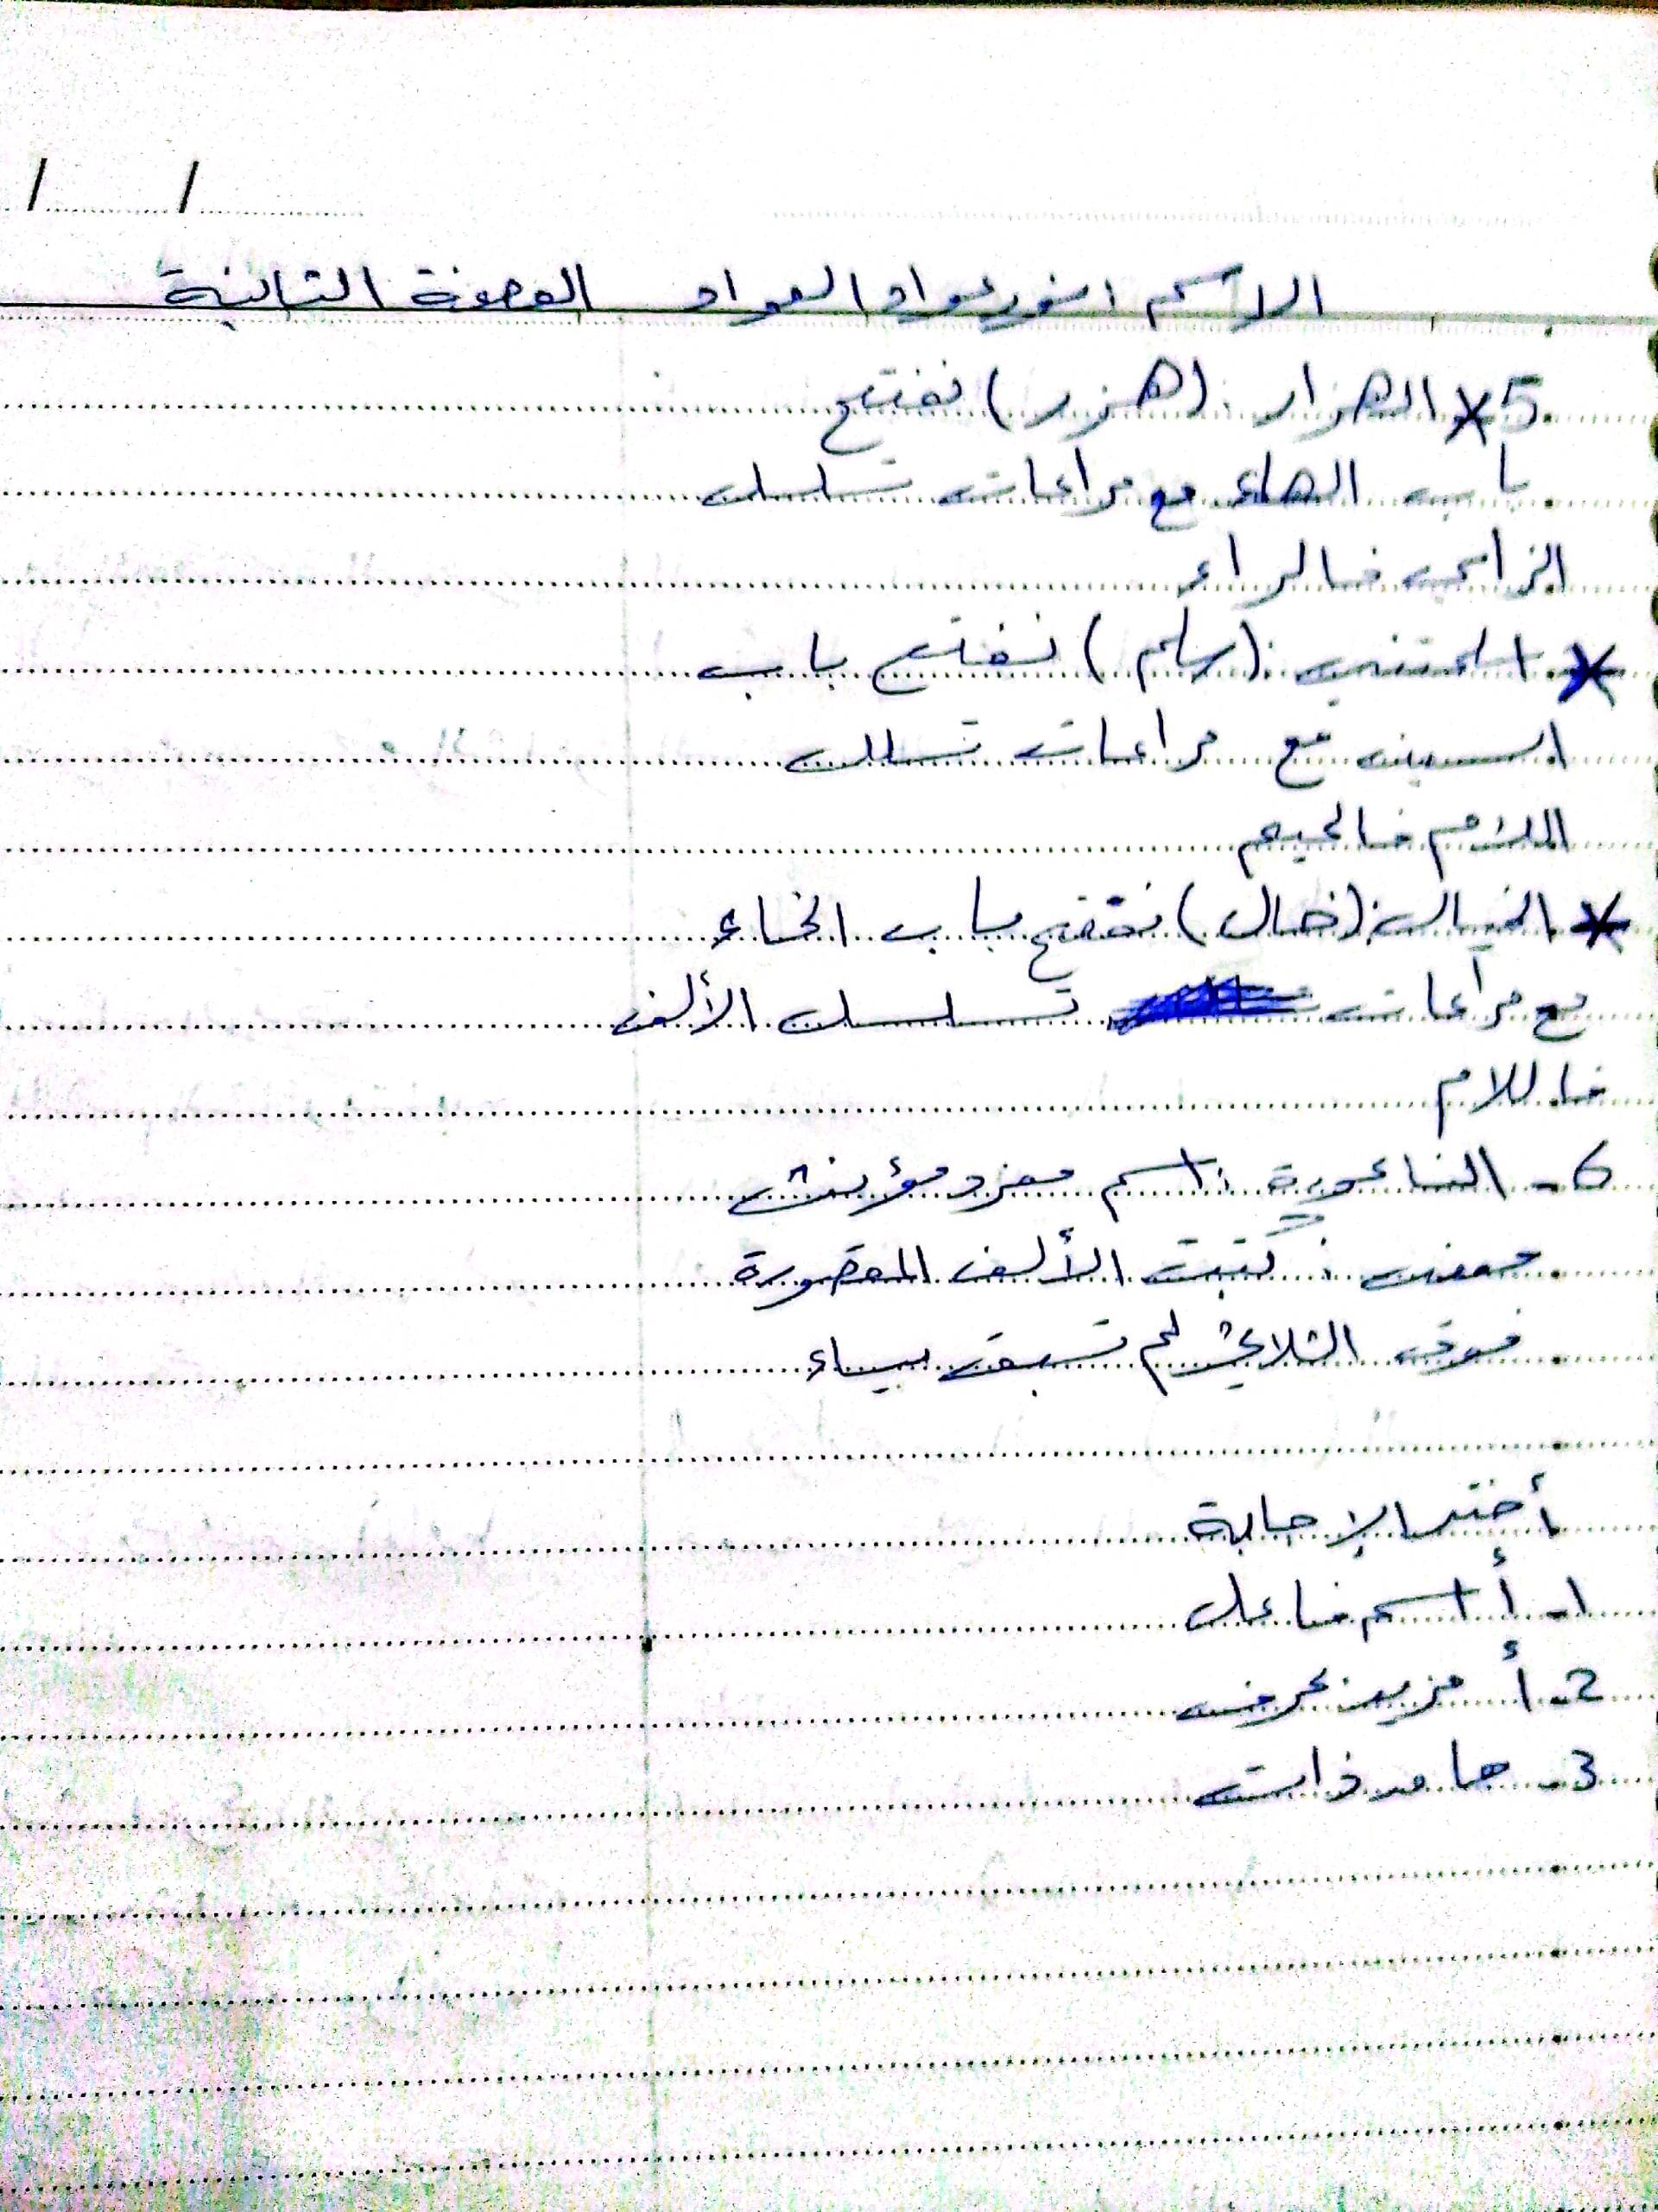 الاسم انور عواد العواد الصفحة الثانية
5 * الهزار (هزر) نفتح
باب الهاء مع مراعات تسلسل
الزاي فالراء
* (سلم) نفتح باب
السين مع مراعات تسلل
اللام فالميم
* الخيال: (خال) نفتح باب الخاء
مع مراعات تسلسل الألف
فاللام
6 - الناعورة: اسم مفرد مؤنث
كتبت الألف المقصورة
فوق الثلاثي لم تسبق بياء
أختر الإجابة
1 - أ اسم فاعل
2 - أ مزيد بحرف
3 - جامد ذات